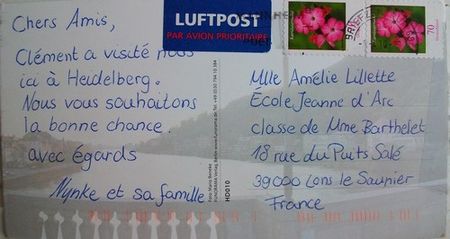 Chers Amis,
Clément a visité nous
ici à Heidelberg.
Nous vous souhaitons
la bonne chance.
avec égards
Nynke et sa famille
LUFTPOST
PAR AVION PRIORITAIRE
70
Mlle Amélie Lillette
École Jeanne d'Arc
classe de Mme Barthelet
18 rue du Puits Salé
39000 Lons le Saunier
France
HD010